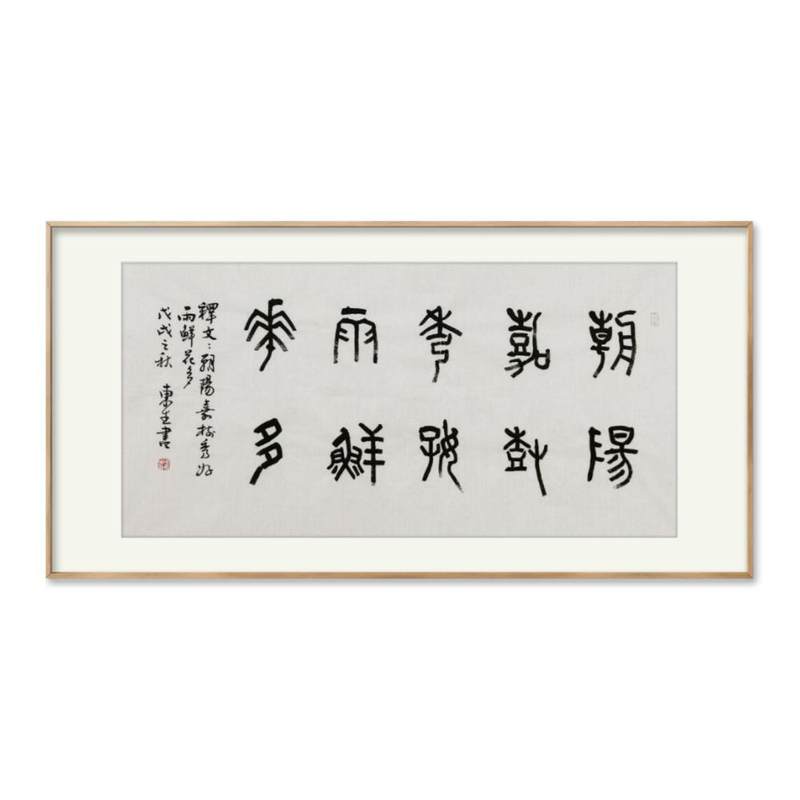 朝陽
嘉樹
秀好
雨鮮
華多
釋文：朝陽嘉樹秀好
雨鮮花多
戊戌之秋 東生書